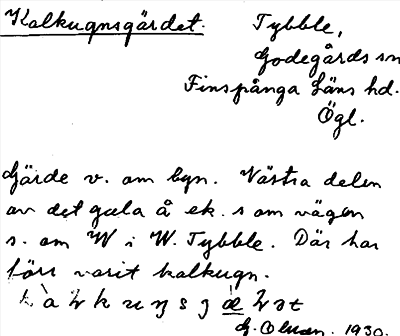 Kalkugnsgärdet.
Tybble,
Godegårds sn
Finspånga läns hd.
Ögl.
Gärde v. om byn. Västra delen
av det gamla å ek. s om vägen
s. om W i W. Tybble. Där har
förr varit kalkugn.
1930.